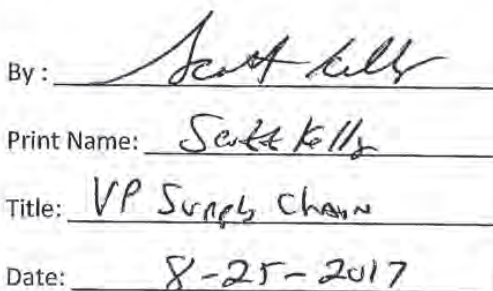 By : Scott Kelly
Print Name: Scott Kelly
Title: VP Supply Chain
Date: 8-25-2017